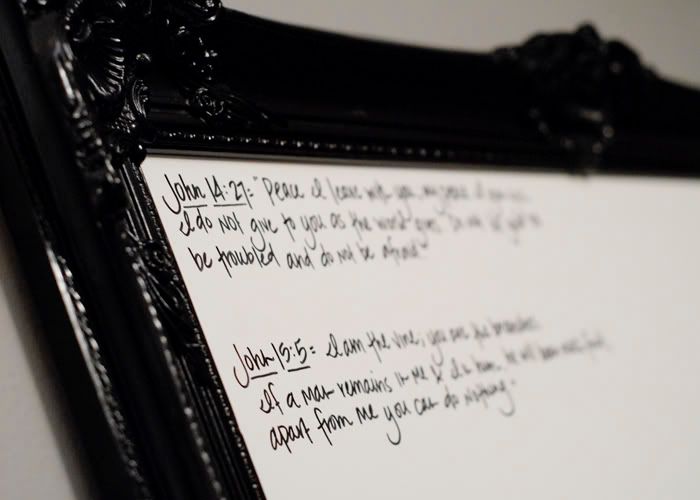 John 14:27: "Peace I leave with you, my peace I
I do NOT give to you as the world gives. Do not let
be troubled and do not be afraid."
John 15:5= I am the vine, you are the branches
If a man remains in me & I in him, he will bear much fruit,
apart from me you can do nothing."